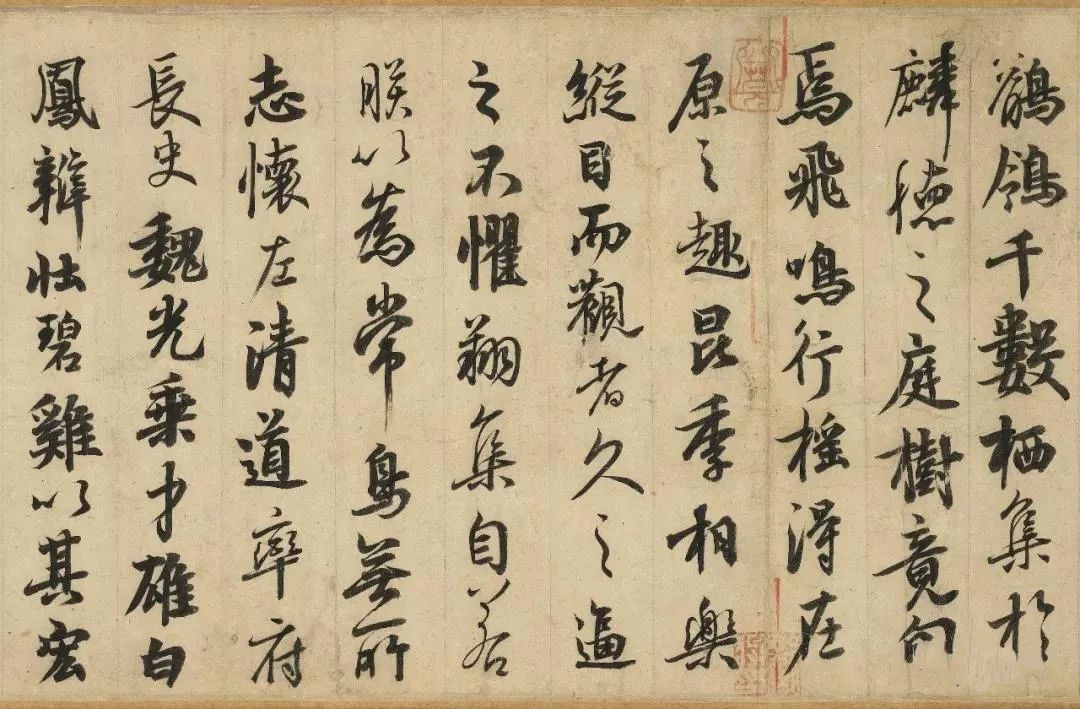 鶺鴒千數栖集於
麟德之庭樹竟旬
焉飛鳴行摇得在
原之趣昆季相樂
縱目而觀者久之逼
之不懼翔集自若
朕以為常鳥無所
志懷左清道率府
長史魏光乗才雄白
鳳辯壮碧雞以其宏